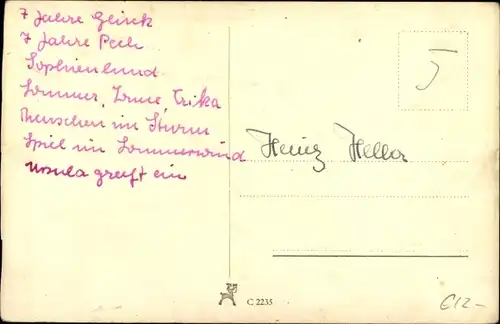 7 Jahre Glück
7 Jahre Pech
Sophienlund
Sommer, Sonne, Erika
Menschen im Sturm
Spiel im Sommerwind
Ursula greift ein
Heinz Heller
C 2235
€12,-